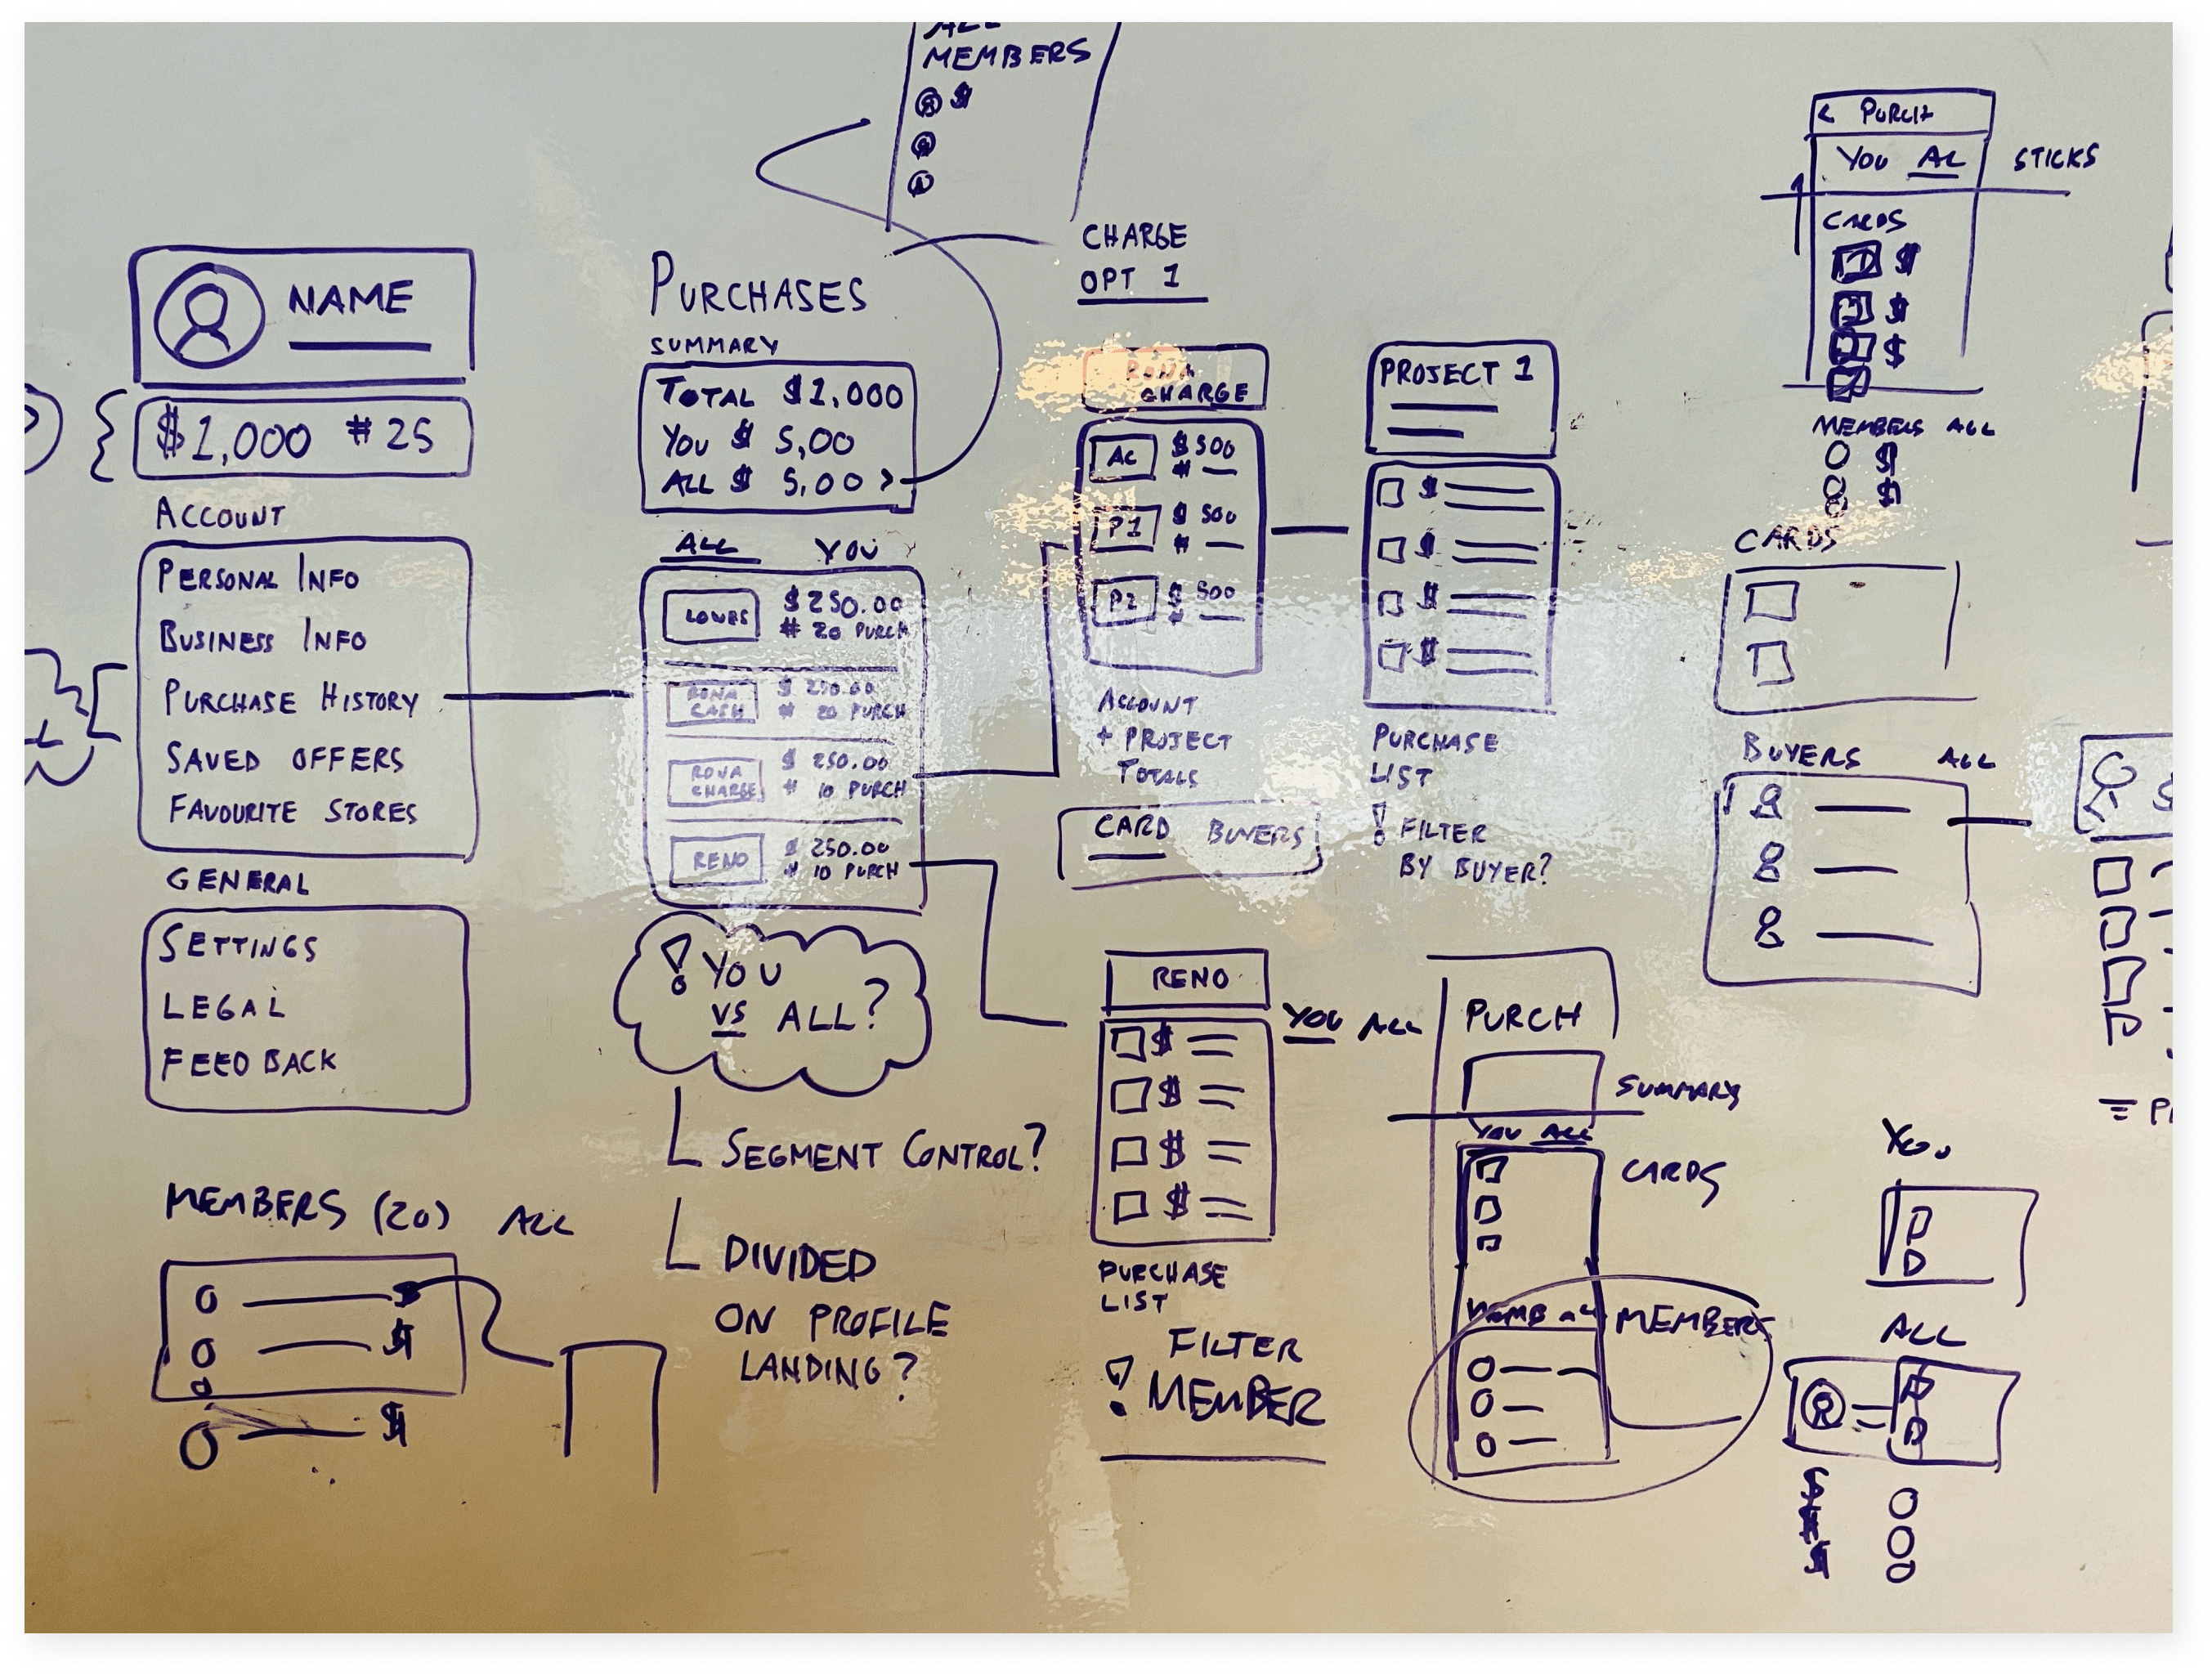 MEMBERS
$
NAME
$1,000 #25
ACCOUNT
PERSONAL INFO
BUSINESS INFO
PURCHASE HISTORY
SAVED OFFERS
FAVOURITE STORES
GENERAL
SETTINGS
LEGAL
FEEDBACK
MEMBERS (20) ALL
$
$
$
PURCHASES
SUMMARY
TOTAL $1,000
YOU $ 5,00
ALL $ 5,00 >
ALL YOU
LOWES $250.00
# 20 PURCH
RONA CASH $ 250.00
# 20 PURCH
RONA CHARGE $ 250.00
# 10 PURCH
RENO $ 250.00
# 10 PURCH
! YOU
VS ALL?
SEGMENT CONTROL?
DIVIDED
ON PROFILE
LANDING?
CHARGE
OPT 1
RONA
CHARGE
AC $500
#
P1 $ 500
#
P2 $ 500
#
ACCOUNT
+ PROJECT
TOTALS
CARD BUYERS
PROJECT 1
$
$
$
$
PURCHASE
LIST
! FILTER
BY BUYER?
RENO
YOU ALL
$
$
$
$
PURCHASE
LIST
FILTER
! MEMBER
PURCH
SUMMARY
YOU ALL
CARDS
MEMBERS
< PURCH
YOU AL STICKS
CARDS
$
$
$
MEMBERS ALL
$
$
CARDS
BUYERS ALL
YOU
ALL